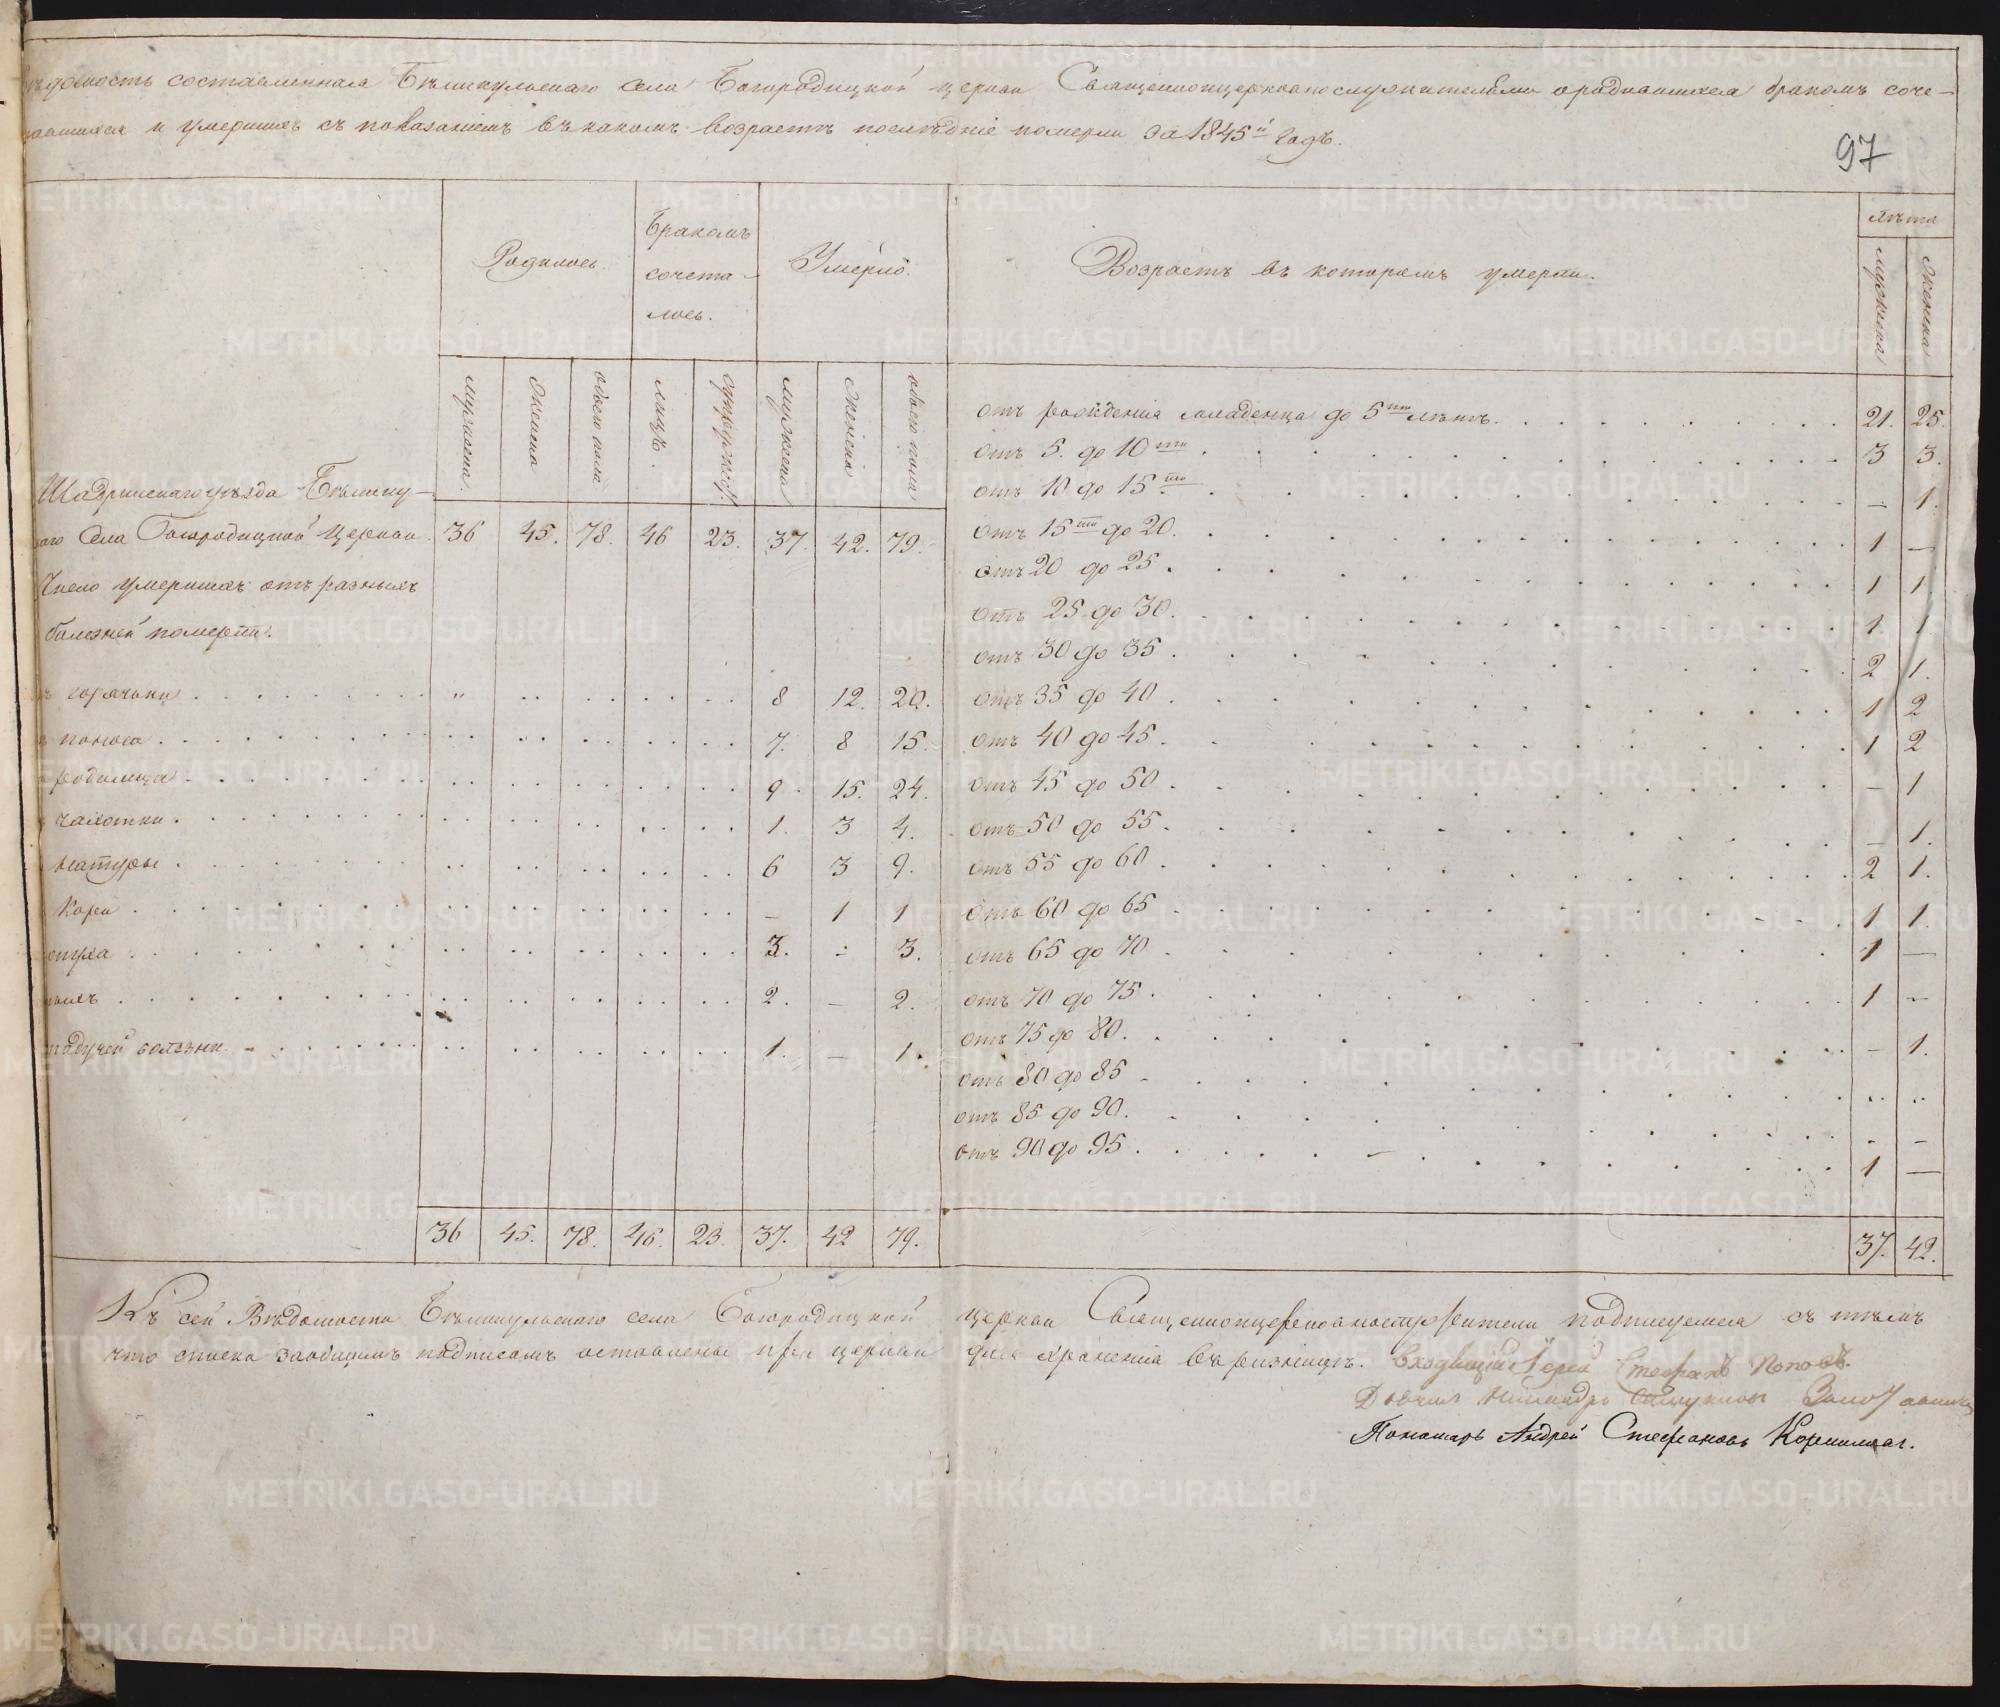 составленная села Богородицкой церкви Священноцерковнослужителями о родившихся бракомъ соче-
и умершихъ съ показаніемъ въ какомъ возрастѣ послѣдніе померли за 1845й годъ.
97
Родилось. Бракомъ сочета-лось. Умерло. Возрастъ въ которомъ умерли. лѣта
мужеска женска
мужеска женска обоего пола лицъ. супружес. мужеска женска обоего пола
отъ рожденія младенца до 5ти лѣтъ. 21. 25.
отъ 5. до 10ти 3 3.
Шадринскаго уѣзда отъ 10 до 15ти — 1.
села Богородицкой церкви 36 45. 78. 46 23. 37. 42. 79. отъ 15ти до 20. 1 —
Число умершихъ отъ разныхъ отъ 20 до 25. 1 1
болезней отъ 25 до 30. 1 1
отъ 30 до 35. 2 1.
горячки 8 12. 20. отъ 35 до 40. 1 2
поноса 7. 8 15. отъ 40 до 45. 1 2
родимца 9. 15. 24. отъ 45 до 50. — 1
чахотки 1. 3 4. отъ 50 до 55. — 1.
натуры 6 3 9. отъ 55 до 60. 2 1.
Кори — 1 1 отъ 60 до 65. 1 1.
3. — 3. отъ 65 до 70. 1 —
2. — 2. отъ 70 до 75. 1 —
падучей болезни 1. — 1. отъ 75 до 80. — 1.
отъ 80 до 85
отъ 85 до 90. - -
отъ 90 до 95. 1 —
36 45. 78. 46. 23. 37. 42 79. 37. 42.
Къ сей Вѣдомости села Богородицкой церкви Священноцерковнослужители подписуемся съ тѣмъ
что списки заобщимъ подписомъ оставлены при церкви для храненія въ ризницѣ. Іерей Стефанъ Поповъ.
Пономарь Андрей Стефановъ
METRIKI.GASO-URAL.RU